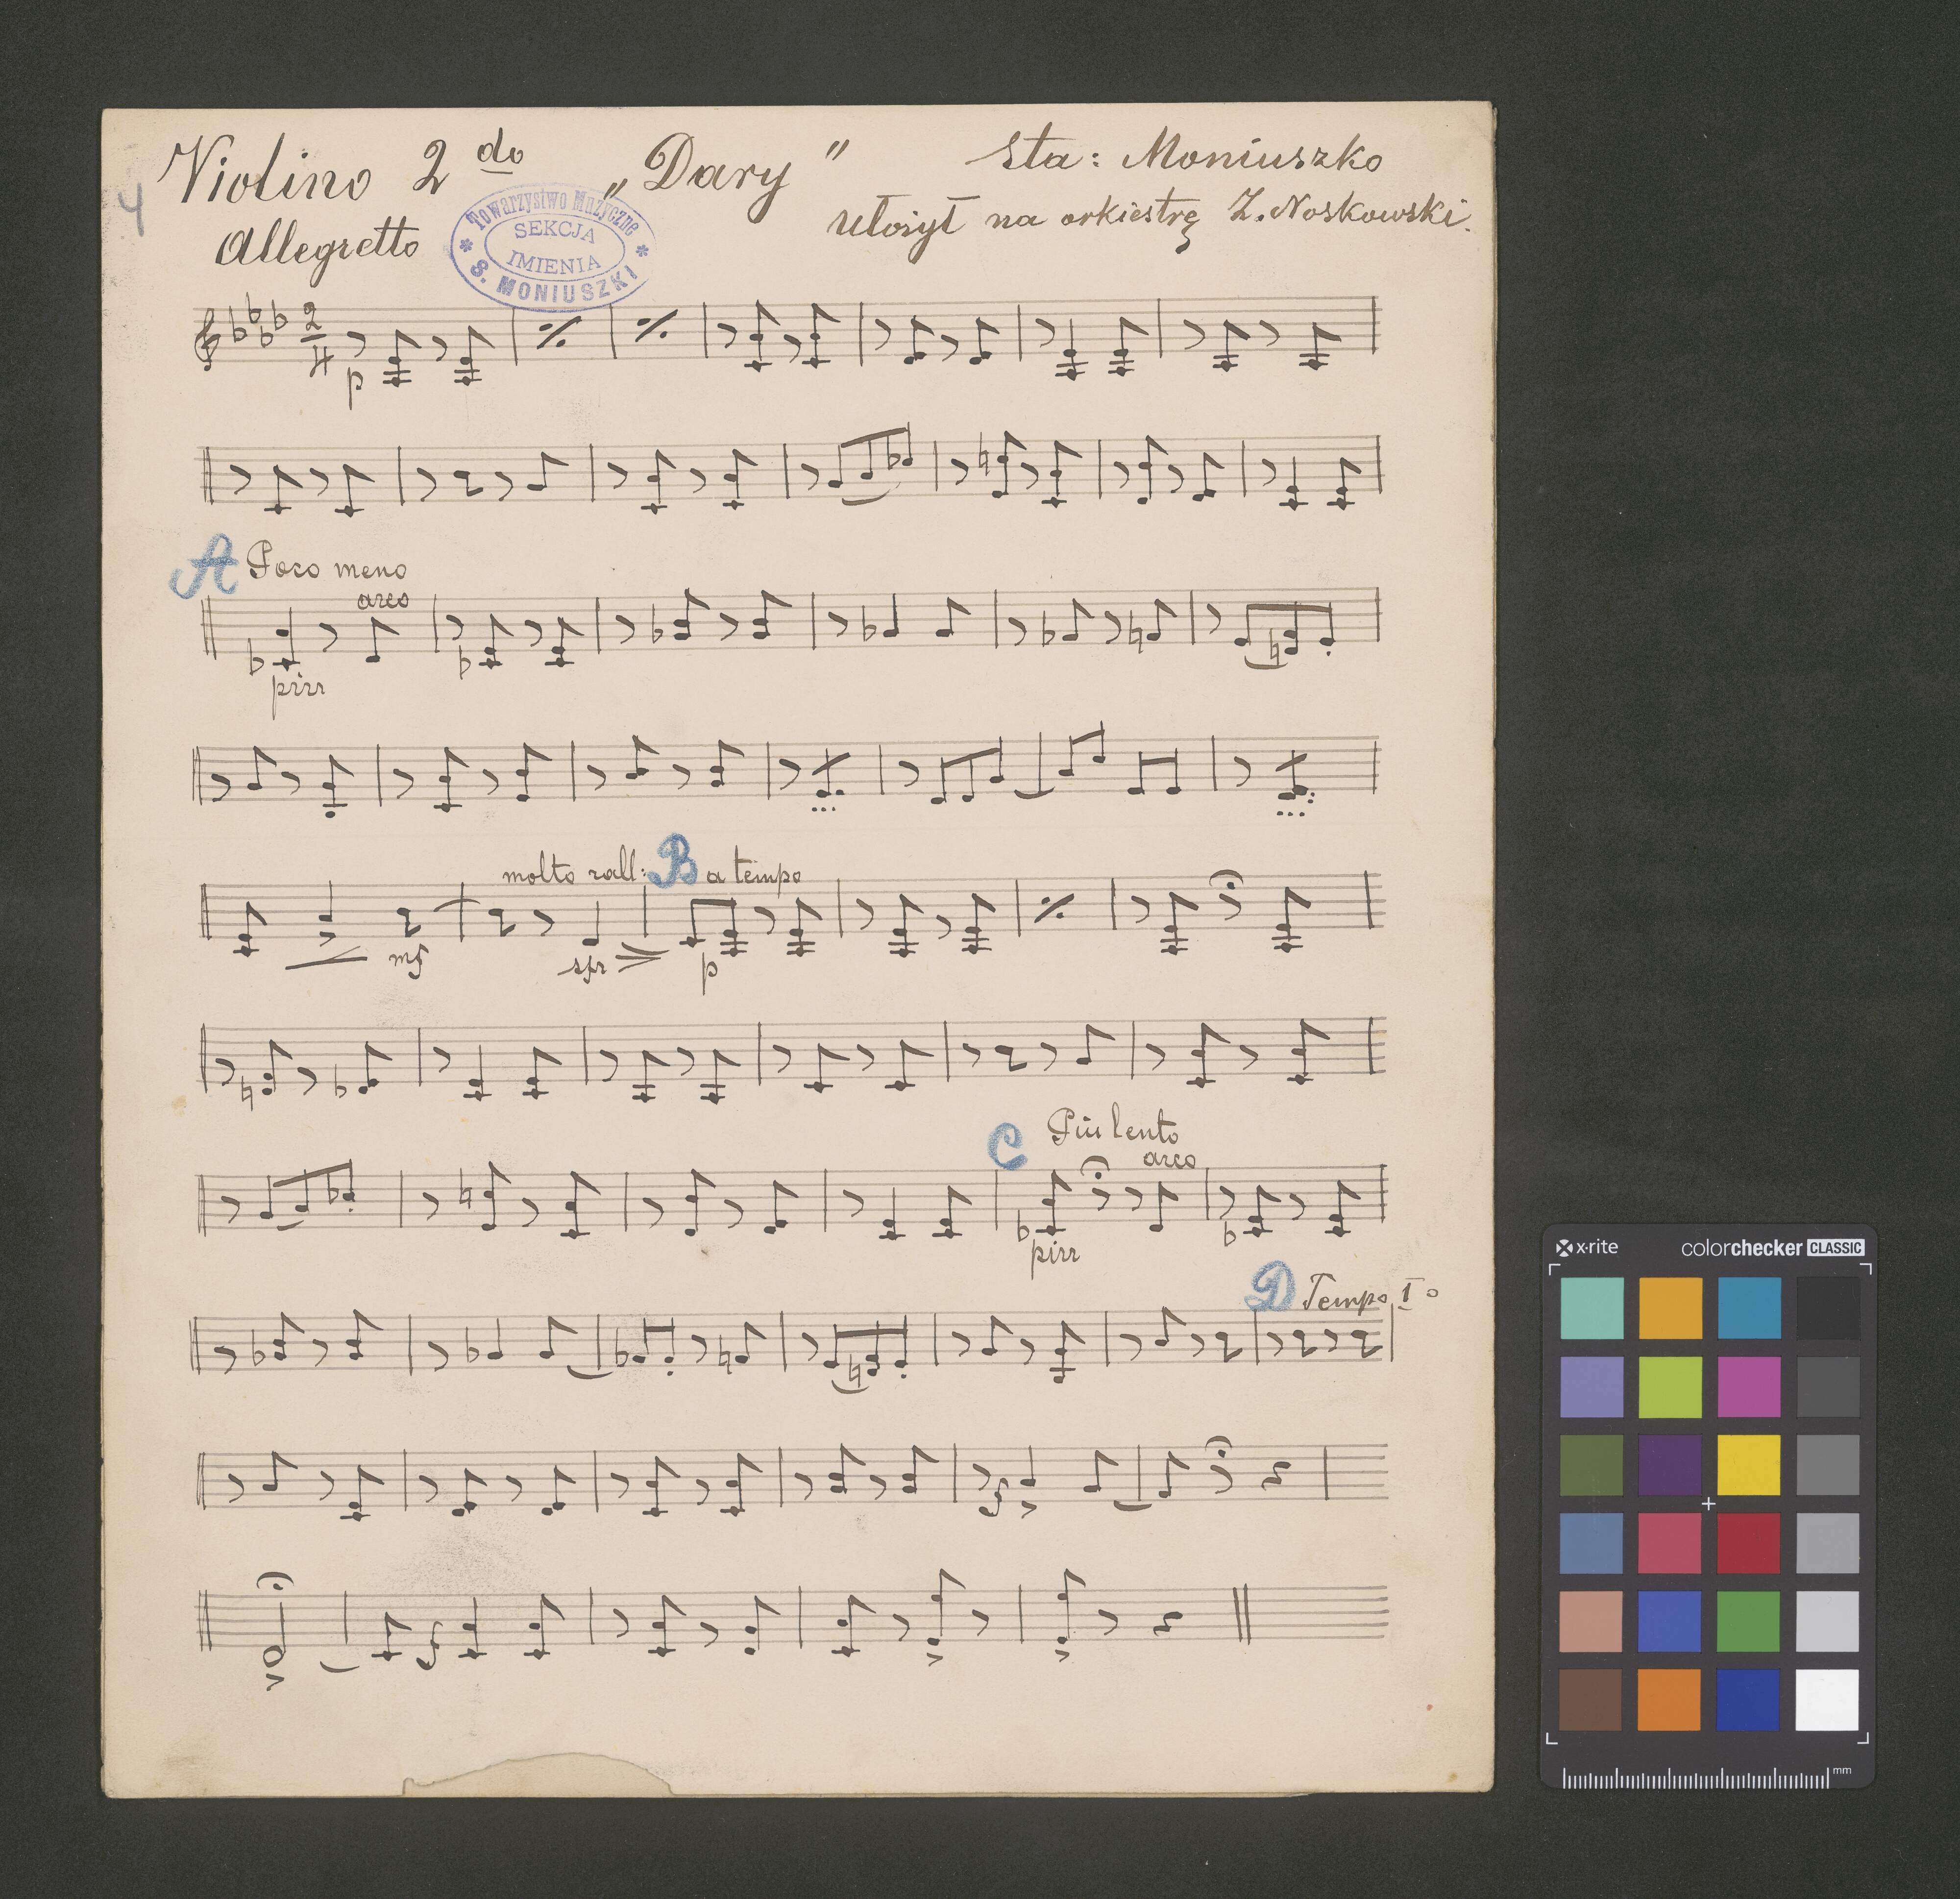 Violino 2 do „Dary” sta: Moniuszko
4
ułożył na orkiestrę Z. Noskowski.
Allegretto
Towarzystwo Muzyczne
SEKCJA
IMIENIA
S. MONIUSZKI
2
4
p
A Poco meno
arco
pizz
molto rall: B a tempo
mf
p
C Più lento
arco
pizz
D Tempo I o
sf
sf
x-rite colorchecker CLASSIC
mm